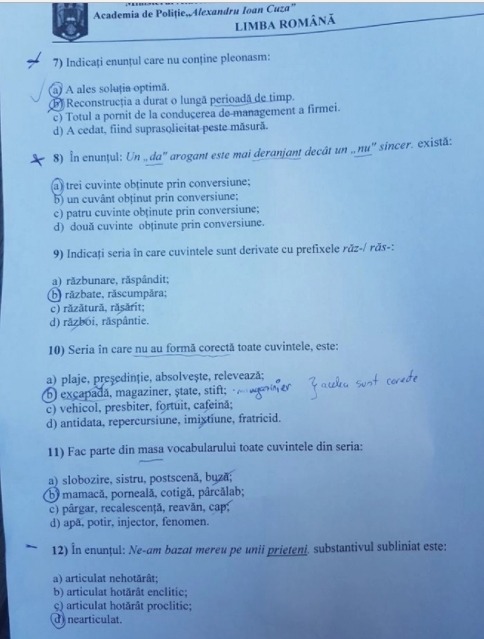 Academia de Poliţie„Alexandru Ioan Cuza”
LIMBA ROMÂNĂ
7) Indicaţi enunţul care nu conţine pleonasm:
a) A ales soluţia optimă.
b) Reconstrucţia a durat o lungă perioadă de timp.
c) Totul a pornit de la conducerea de management a firmei.
d) A cedat, fiind suprasolicitat peste măsură.
8) În enunţul: Un „da” arogant este mai deranjant decât un „nu” sincer. există:
a) trei cuvinte obţinute prin conversiune;
b) un cuvânt obţinut prin conversiune;
c) patru cuvinte obţinute prin conversiune;
d) două cuvinte obţinute prin conversiune.
9) Indicaţi seria în care cuvintele sunt derivate cu prefixele răz-/ răs-:
a) răzbunare, răspândit;
b) răzbate, răscumpăra;
c) răzătură, răsărit;
d) război, răspântie.
10) Seria în care nu au formă corectă toate cuvintele, este:
a) plaje, preşedinţie, absolveşte, relevează;
b) excapadă, magaziner, ştate, stift; magazinier } acelea sunt corecte
c) vehicol, presbiter, fortuit, cafeină;
d) antidata, repercursiune, imixtiune, fratricid.
11) Fac parte din masa vocabularului toate cuvintele din seria:
a) slobozire, sistru, postscenă, buză;
b) mamacă, porneală, cotigă, pârcălab;
c) pârgar, recalescenţă, reavăn, cap;
d) apă, potir, injector, fenomen.
12) În enunţul: Ne-am bazat mereu pe unii prieteni. substantivul subliniat este:
a) articulat nehotărât;
b) articulat hotărât enclitic;
c) articulat hotărât proclitic;
d) nearticulat.